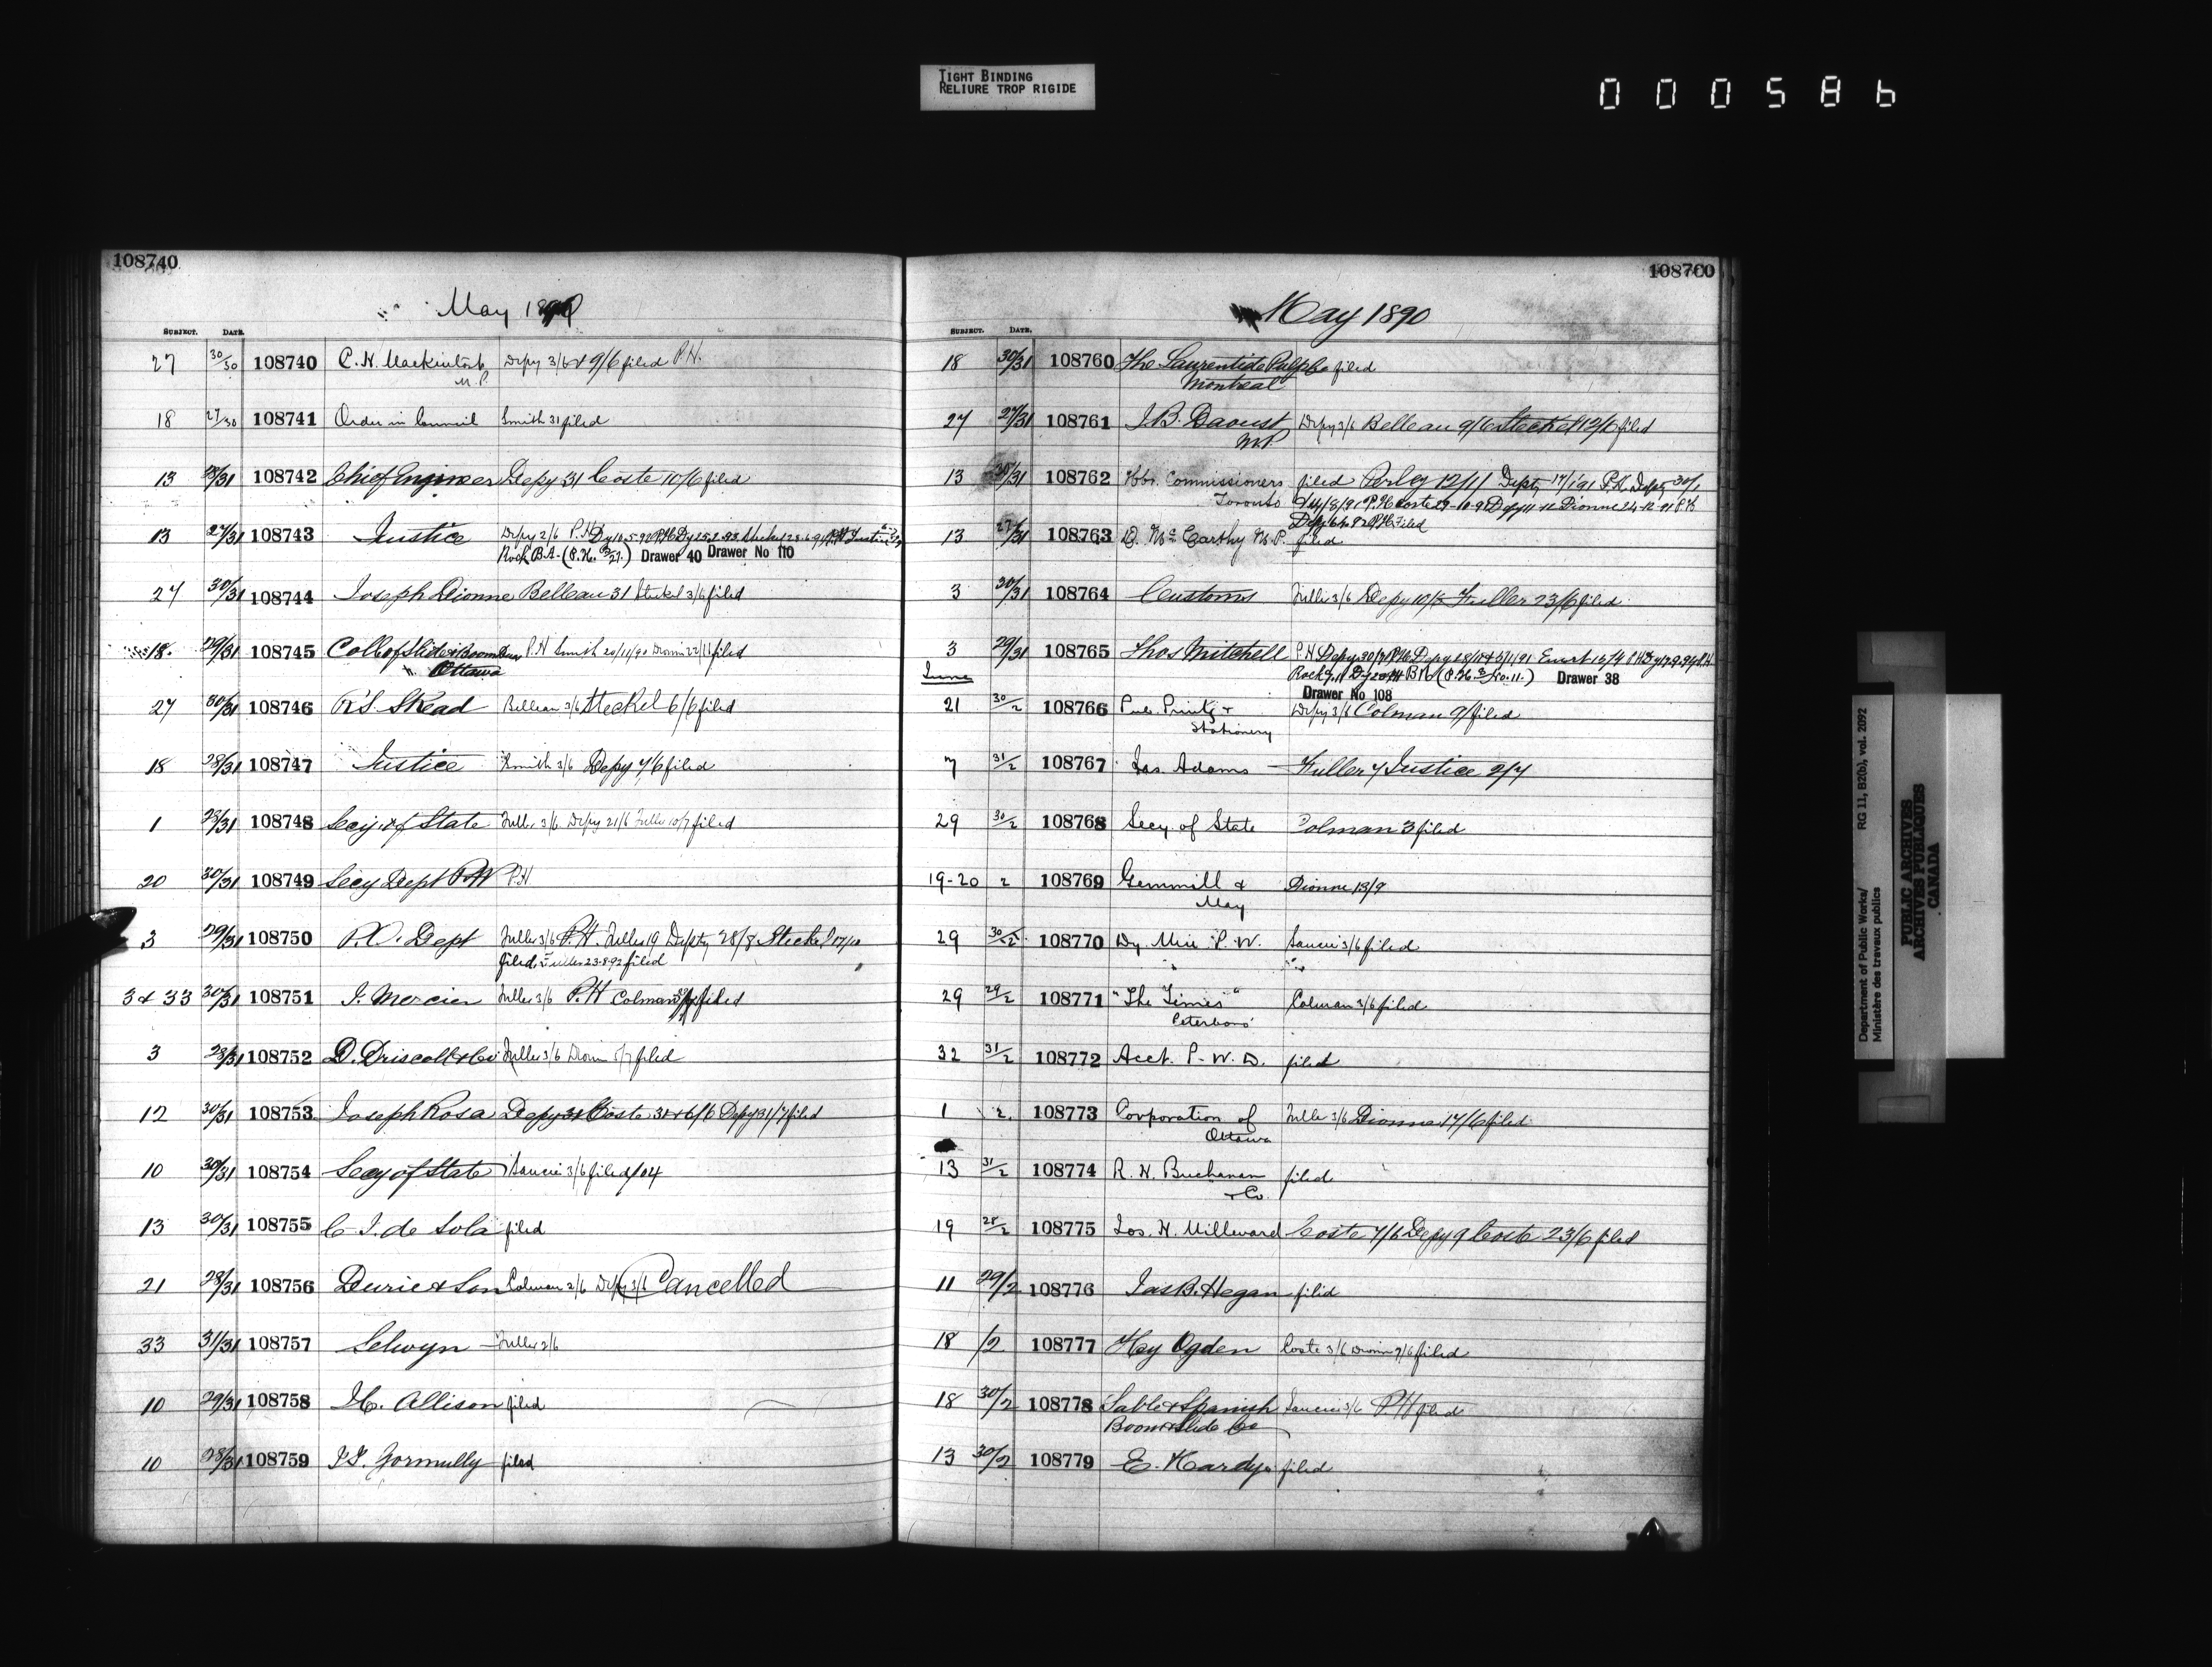 TIGHT BINDING
RELIURE TROP RIGIDE
000586
108740
May 1890
SUBJECT. DATE.
27 30/30 108740 C. H. Mackintosh Depy 3/6 & 9/6 filed P.H.
M.P.
18 27/30 108741 Order in Council Smith 31 filed
13 28/31 108742 Chief Engineer Depy 31 Coste 10/6 filed
13 27/31 108743 Justice Depy 2/6 P.H.
Rock B.A. Drawer 40 Drawer No 110
27 30/31 108744 Joseph Dionne Belleau 31 Steckel 3/6 filed
18. 29/31 108745 Coll of Slide & Boom Dues P.H Smith 20/11/90 Dionne 22/11 filed
" Ottawa
27 30/31 108746 R S Skead Belleau 3/6 Steckel 6/6 filed
18 28/31 108747 Justice Smith 3/6 Depy 4/6 filed
1 28/31 108748 Secy. of State Fuller 3/6 Depy 21/6 Fuller 10/7 filed
20 30/31 108749 Secy Dept P.W P.H
3 29/31 108750 P.O. Dept Fuller 3/6 P.H. Fuller 19 Depty 28/8 Steckel
filed. Fuller 23.8.92 filed
3 & 33 30/31 108751 J. Mercier Fuller 3/6 P.H Colman filed
3 28/31 108752 D. Driscoll & Co Fuller 3/6 Dionne 5/7 filed
12 30/31 108753 Joseph Rosa Depy 31 Coste 31 & 6/6 Depy 31/7 filed
10 30/31 108754 Secy of State Saucier 3/6 filed /04
13 30/31 108755 C. I. de Sola filed
21 28/31 108756 Durie & Son Colman 2/6 Depy 3/6 Cancelled
33 31/31 108757 Selwyn Fuller 2/6
10 29/31 108758 H. Allison filed
10 28/31 108759 J. Gormully filed
108760
May 1890
SUBJECT. DATE.
18 30/31 108760 The Laurentide Pulp Co filed
Montreal
27 27/31 108761 J.B. Daoust Depy 3/6 Belleau 9/6 Steckel 12/6 filed
M.P.
13 30/31 108762 Hbr. Commissioners filed Perley 12/11 Depty 17/1/91 P.H. Depty 30/1
Toronto P.H. Coste 29-10-91 Depy 11-12 Dionne 24-12-91 P.H
P.H. Filed
13 27/31 108763 D. McCarthy M.P. filed
3 30/31 108764 Customs Fuller 3/6 Depy 10/6 Fuller 23/6 filed
3 29/31 108765 Thos Mitchell P.H Depy 30/7 P.H. Depy
June Drawer 38
Drawer No 108
21 30/2 108766 Pub. Printg & Depy 3/6 Colman 9/ filed
Stationery
7 31/2 108767 Jas Adams Fuller 4 Justice 2/7
29 30/2 108768 Secy of State Colman 3 filed
19-20 2 108769 Gemmill & Dionne 13/9
May
29 30/2 108770 Dy. Min P. W. Saucier 3/6 filed
29 29/2 108771 "The Times" Colman 3/6 filed
Peterboro'
32 31/2 108772 Acct. P. W. D. filed
1 2. 108773 Corporation of Fuller 3/6 Dionne 17/6 filed
Ottawa
13 31/2 108774 R. H. Buchanan filed
& Co.
19 28/2 108775 Jos. H. Milleward Coste 4/6 Depy 9 Coste 23/6 filed
11 29/2 108776 Jas B. Hegan filed
18 /2 108777 Hey Ogden Coste 3/6 Dionne 7/6 filed
18 30/2 108778 Sable & Spanish Saucier 3/6 P.H filed
Boom & Slide Co
13 30/2 108779 E. Hardy filed
Department of Public Works/ RG 11, B2(b), vol. 2092
Ministère des travaux publics
PUBLIC ARCHIVES
ARCHIVES PUBLIQUES
CANADA